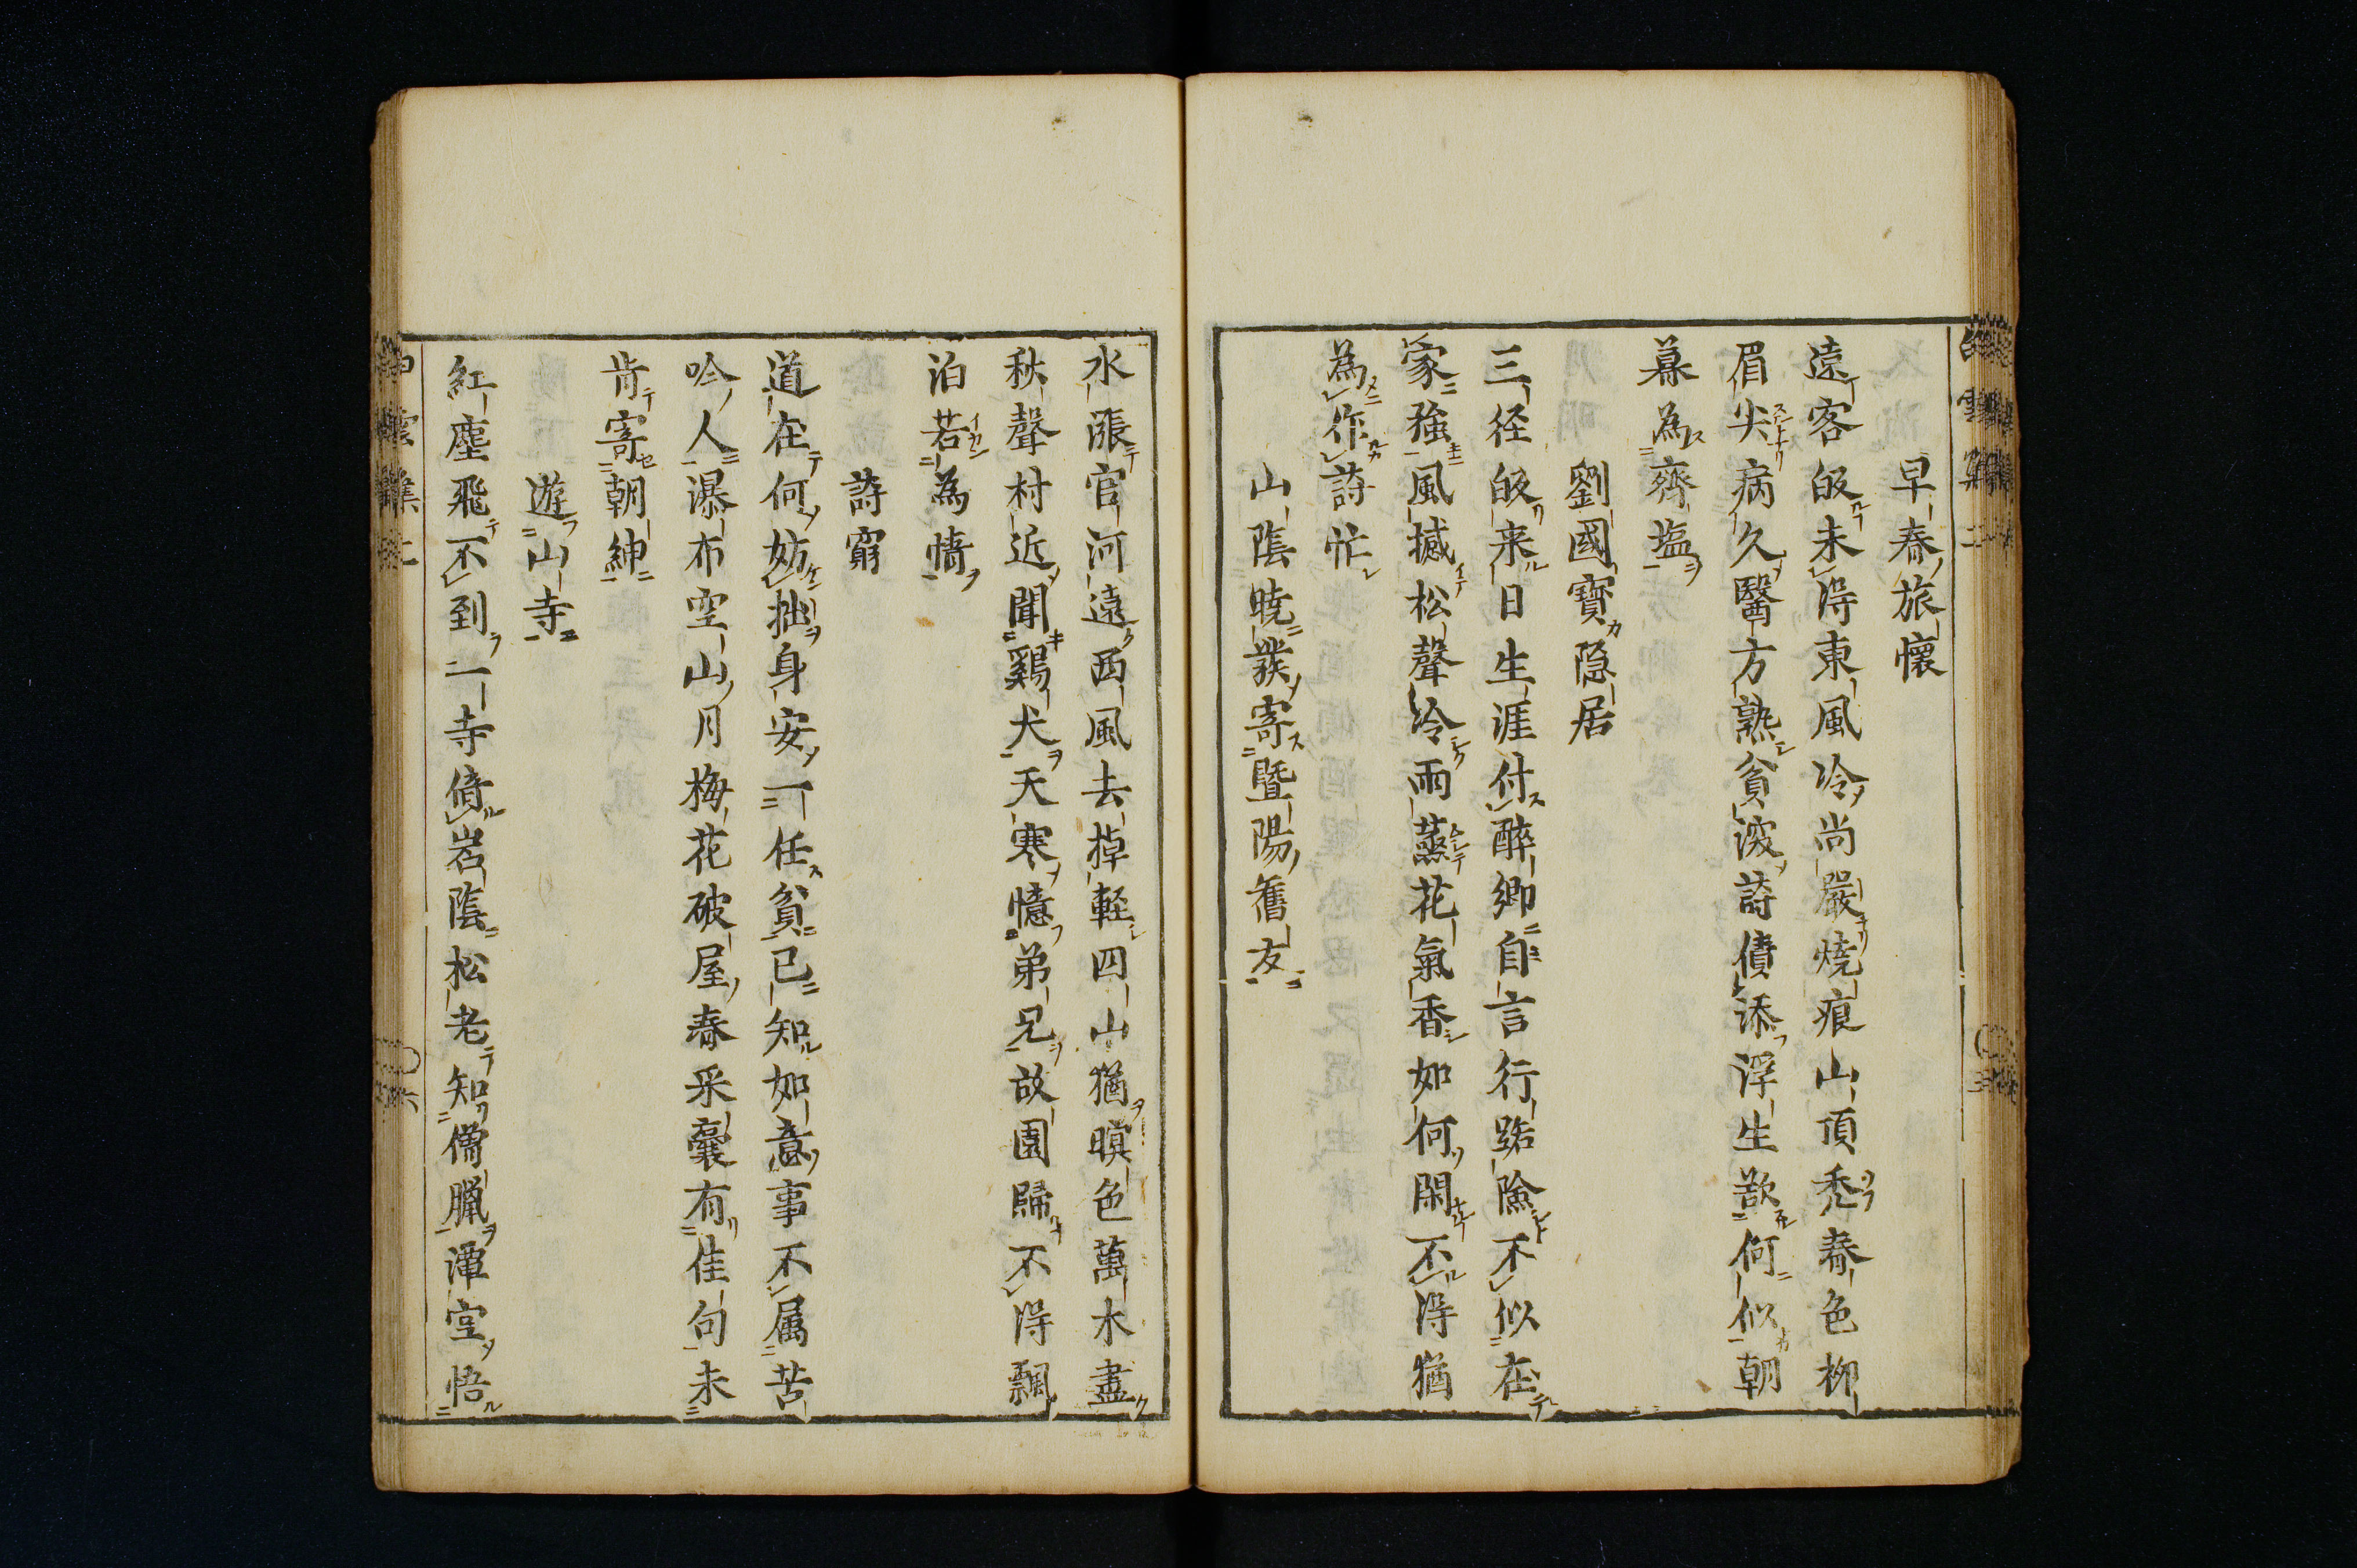 早春旅懷
遠客皈未得東風冷尚嚴燒痕山頂禿春色柳
眉尖病久醫方熟貧波詩債添浮生欲何似朝
暮為齊塩
劉國寶隐居
三径皈来日生涯付醉郷自言行路險不似在
家強風撼松聲冷雨蒸花氣香如何閑不得猶
為作詩忙
山陰暁發寄曁陽舊友
水漲官河遠西風去掉軽四山猶暝色萬木盡
秋聲村近聞鷄犬天寒憶弟兄故園歸不得飄
泊若為情
詩窮
道在何妨拙身安一任貧已知如意事不属苦
吟人瀑布空山月梅花破屋春采囊有佳句未
肯寄朝紳
遊山寺
紅塵飛不到一寺倚岩陰松老知僧臘潭空悟